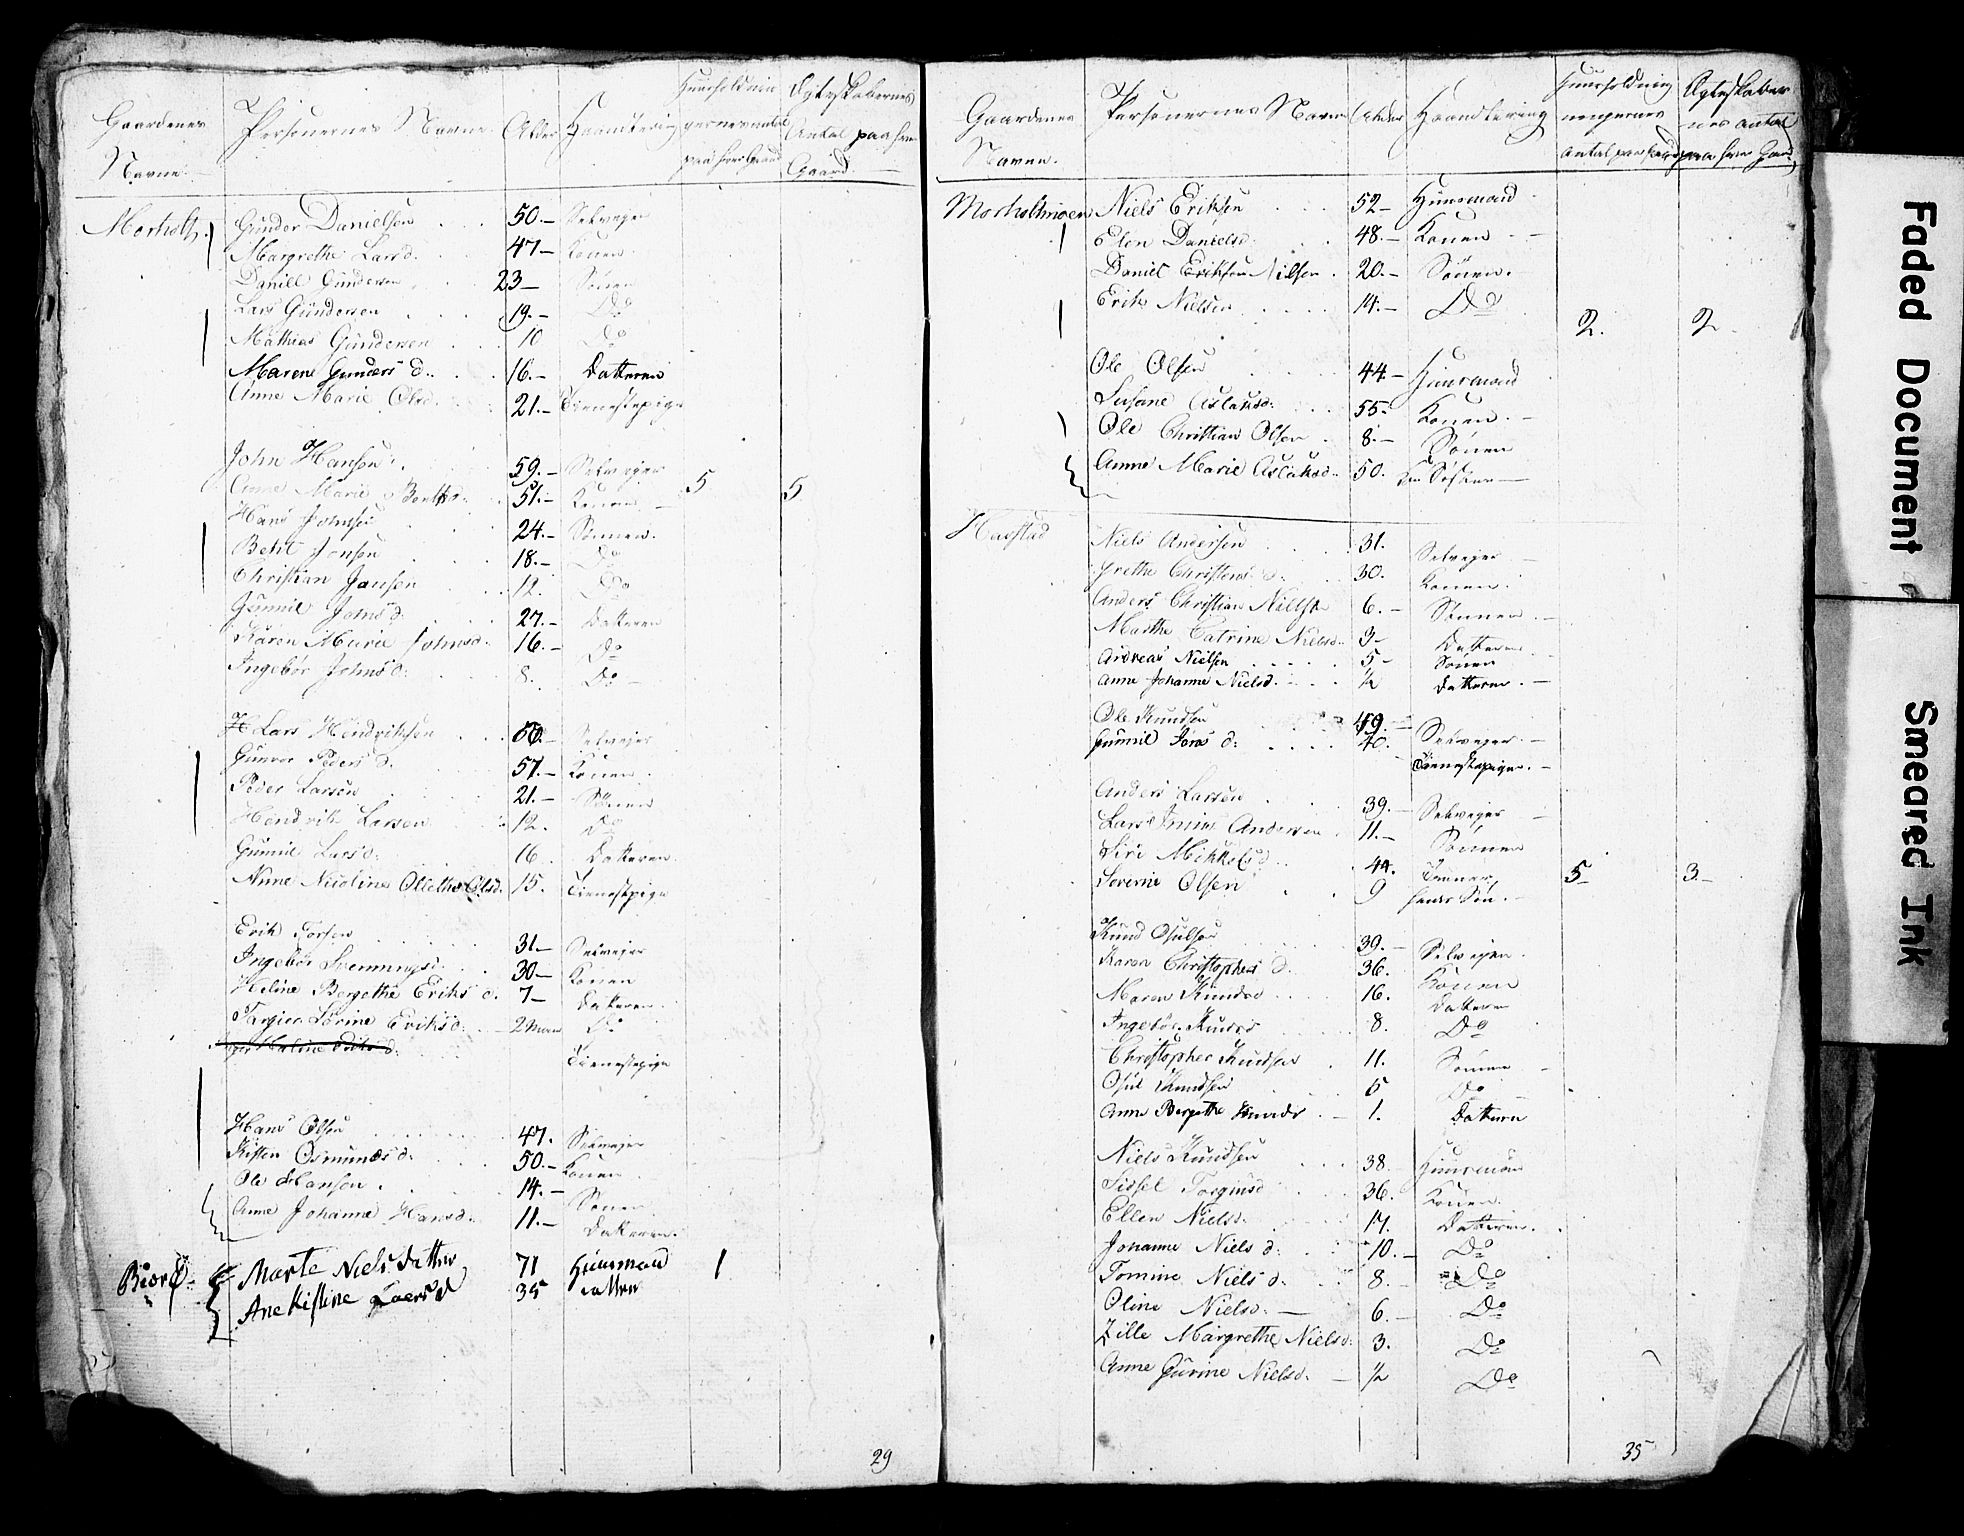 Gaardenes Navne. Personernes Navne Alder Haandtering Huusholdnin gernes antal paa hver Gaard Ægteskabernes Antal paa hver Gaard.
Morholt. Gunder Danielsen 50.- Selveyer
Margrethe Larsd. 47- Konen.
Daniel Gundersen 23- Sönen
Lars Gundersen 19.- Do
Mathias Gundersen 10 Do
Maren Gunders d. 16.- Datteren
Anne Marie Olsd. 21.- Tienestepige
John Hansen 59.- Selveyer
Anne Marie Bentsd. 51.- Konen. 5 5
Hans Johnsen 24.- Sönnen.
Beht Jonsen 18.- Do
Christian Jansen 12. Do
Gunnil Johnsd. 27.- Datteren
Karen Marie Johnsd. 16.- Do
Ingebör Johnsd. 8. Do-
Lars Hendriksen Selveyer
Gunvor Peders d. 57.- Konen.
Peder Larsen 21.- Sönen
Hendrik Larsen 12. Do
Gunnil Larsd. 16. Datteren.
Anne Nicoline Ollethe Olsd. 15. Tienestepige
Erik Torsen 31- Selveyer
Ingebör Svennungsd. 30- Konen
Heline Bergethe Eriks d. 7- Datteren.
Torgier Lorine Eriksd. 2 Maan Do
Tienestepige
Hans Olsen 47. Selveyer
Kisten Osmunds d. 50.- Konen
Ole Hansen. 14.- Sönen
Anne Johanne Hansd. 11.- Datteren.
Biörd. Marte Niels datter 71 Huusmand 1
Ane Kistine Laersd 35 datter
29
Gaardenes Navne. Personernes Navne Alder Haandtering Huusholdning nengernes Antal paa hver Gaard Ægteskaber nes antal paa hver Gaard
Morholtmoen Niels Eriksen 52- Huusmand
Elen Danielsd. 48.- Konen -
Daniel Eriksen Nilsen. 20.- Sönen.
Erik Nielsen 14.- Do
2. 2
Ole Olsen 44- Huusmand
Susane Aslaksd. 55- Konen. -
Ole Christian Olsen. 8.- Sönen
Anne Marie Aslaksd. 50. Söster -
Hafstad Niels Andersen 31. Selveyer -
Grethe Christens d. 30. Konen.
Anders Christian Nielsen 6.- Sönnen. -
Marthe Catrine Nielsd. 3- Datteren
Andreas Nielsen 5- Sönen
Anne Johanne Nielsd. 1/2 Datteren. -
Ole Knudsen 49.- Selveyer. -
Gunnil Jons d: 40. Tienestepige. -
Anders Larsen 39. Selveyer -
Lars Andersen 11.- Sönnen
Siri Mikkelsd. 44.
Soverin Olsen 9 hendes Sön. - 5- 3-
Knud Osulsen 39. Selveyer.
Karen Christophers d. 36. Konen
Maren Knudsd 16. Datteren
Ingebör Knudsd 8. Do
Christopher Knudsen 11. Sönnen -
Osul Knudsen 5 Do
Anne Bergethe Knudsd 1. Datteren
Niels Knudsen 38. Huusman
Sissel Torgiusd 36. Konen.
Ellen Nielsd. 17. Datteren.
Johanne Niels d. 10.- Do
Tomine Niels d. 8.- Do
Oline Nielsd. - 6.- Do
Zille Margrethe Nielsd. 3. Do
Anne Gurine Nielsd. - 1/2 Do
35
Faded Document
Smeared Ink